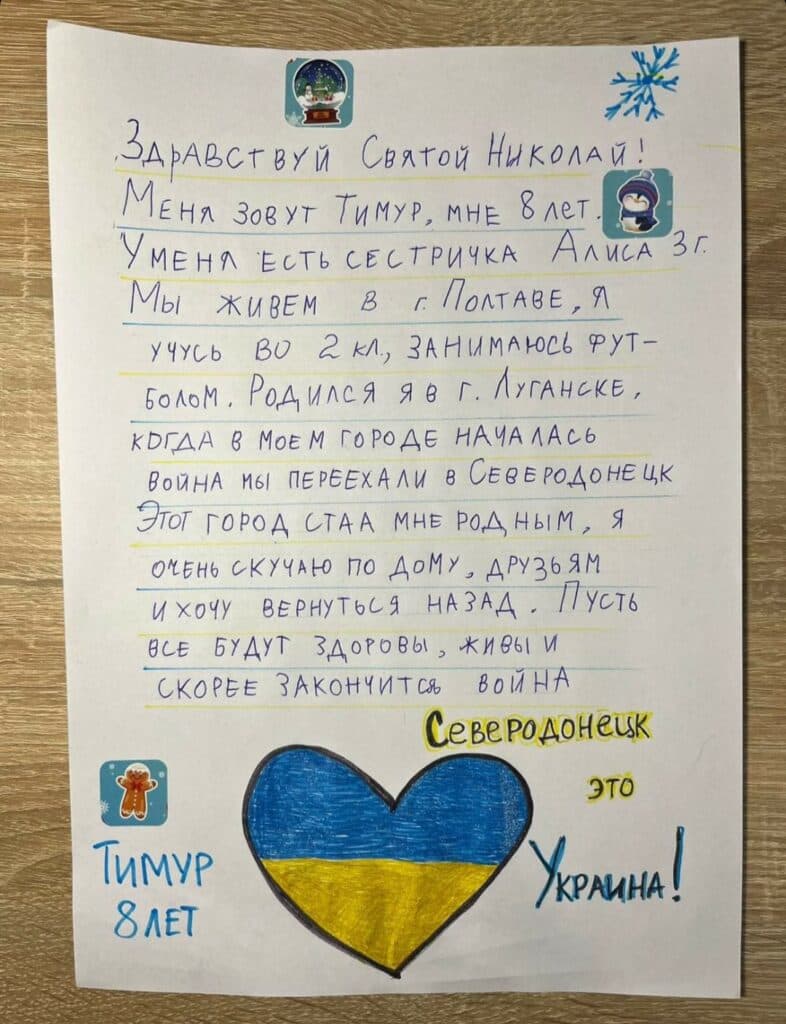 Здравствуй Святой Николай!
Меня зовут Тимур, мне 8 лет.
У меня есть сестричка Алиса 3 г.
Мы живем в г. Полтаве, я
учусь во 2 кл., занимаюсь фут-
болом. Родился я в г. Луганске,
когда в моем городе началась
война мы переехали в Северодонецк
Этот город стал мне родным, я
очень скучаю по дому, друзьям
и хочу вернуться назад. Пусть
все будут здоровы, живы и
скорее закончится война
Северодонецк
это
Украина!
Тимур
8 лет